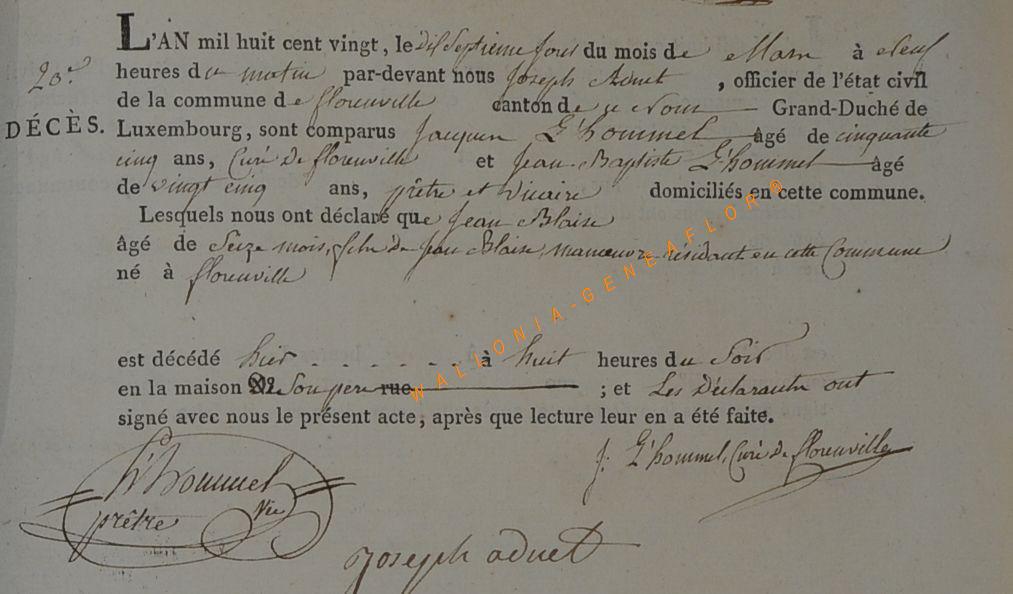 L'AN mil huit cent vingt, le dix Septieme jour du mois de Mars à Neuf
20.e
heures du matin par-devant nous Joseph Adnet, officier de l'état civil
de la commune de florenville canton de Grand-Duché de
DÉCÈS. Luxembourg, sont comparus Jacques L'hommel âgé de cinquante
cinq ans, Curé de florenville et Jean-Baptiste L'hommel âgé
de vingt cinq ans, prêtre et vicaire domiciliés en cette commune.
Lesquels nous ont déclaré que Jean Blaise
âgé de Seize mois, fils de Jean Blaise, manœuvre résidant en cette Commune
né à florenville
est décédé hier . . . . . . à huit heures du Soir
en la maison de Son pere rue ; et Les Déclarants ont
signé avec nous le présent acte, après que lecture leur en a été faite.
J: L'hommel, Curé de florenville
L'hommel
prêtre vic
Joseph adnet
WALLONIA-GENEAFLOR®